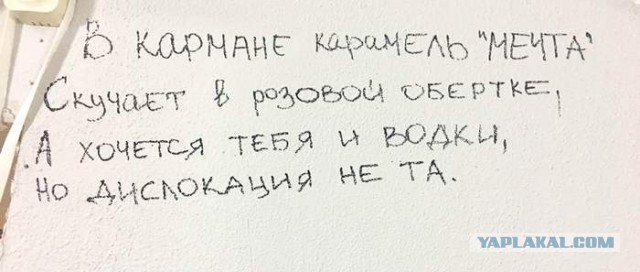 В КАРМАНЕ карамель "МЕЧТА"
Скучает в розовой ОБЕРТКЕ,
А ХОЧЕТСЯ ТЕБЯ И ВОДКИ,
НО ДИСЛОКАЦИЯ НЕ ТА.
YAPLAKAL.COM